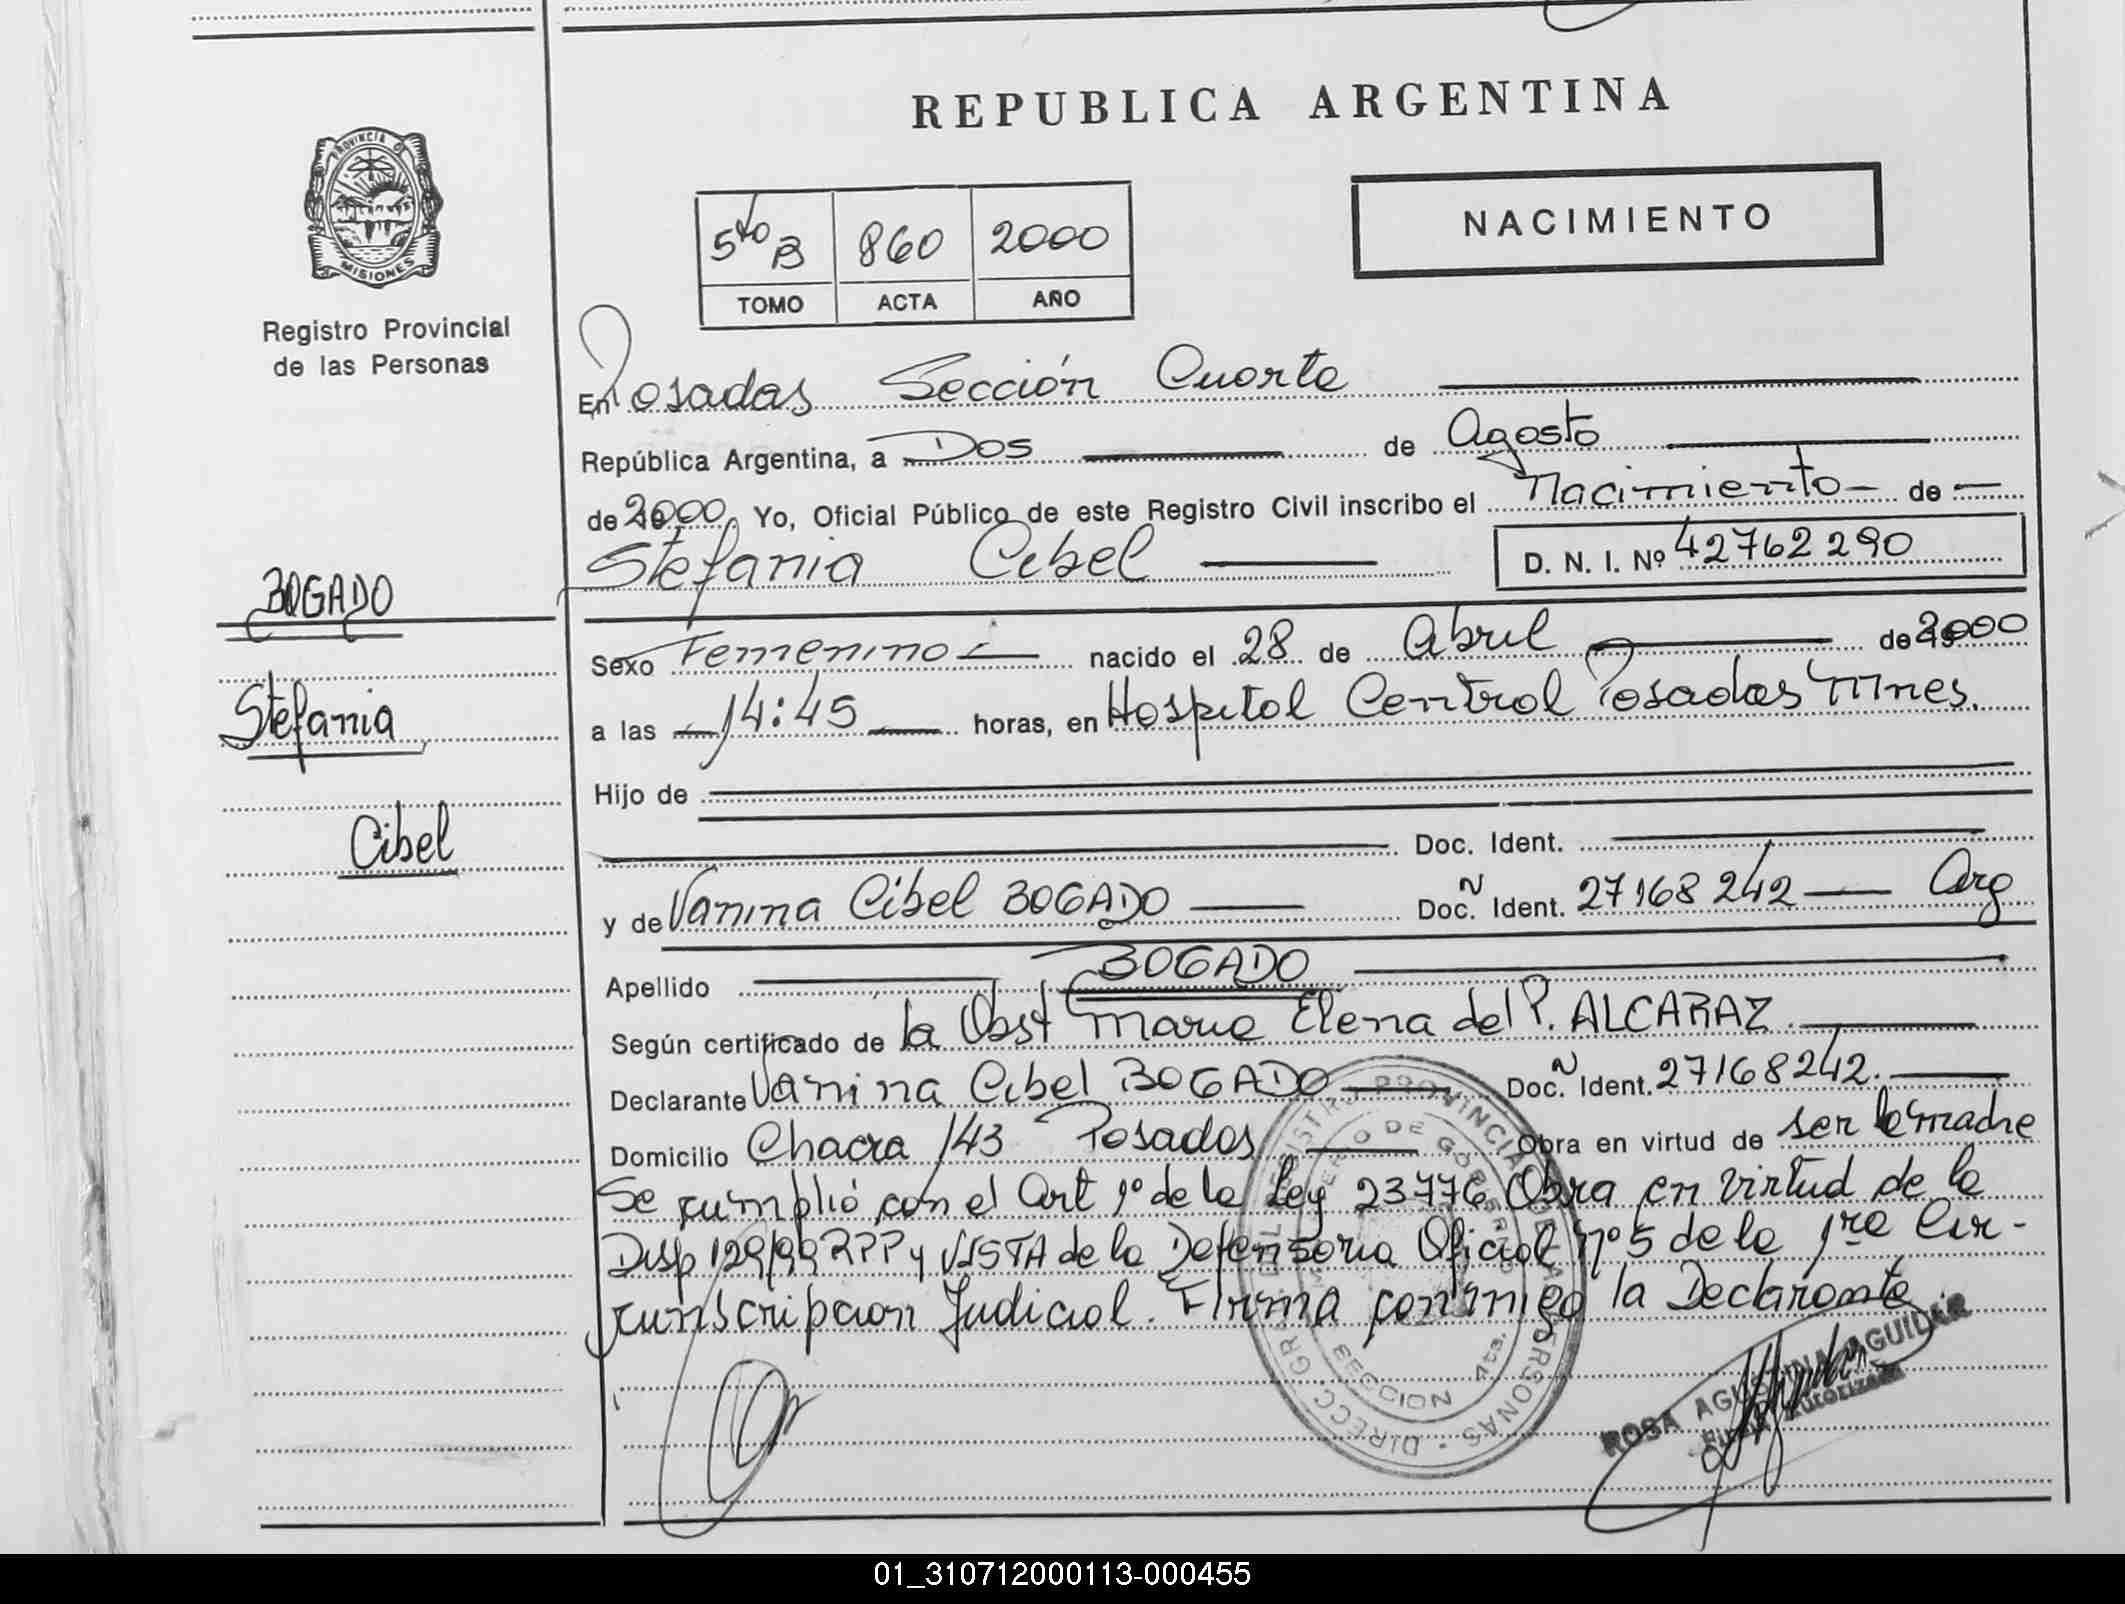 REPUBLICA ARGENTINA
PROVINCIA DE
MISIONES
Registro Provincial
de las Personas
5to B 860 2000
TOMO ACTA AÑO
NACIMIENTO
En Posadas Sección Cuarta
República Argentina, a Dos de Agosto
de 2000 Yo, Oficial Público de este Registro Civil inscribo el Nacimiento de
Stefania Cibel D. N. I. Nº 42762290
BOGADO
Stefania
Cibel
Sexo Femenino nacido el 28 de Abril de 2000
a las 14:45 horas, en Hospital Central Posadas Mnes.
Hijo de
Doc. Ident.
y de Vanina Cibel BOGADO Doc. N Ident. 27168242 Arg
Apellido BOGADO
Según certificado de la Obst Maria Elena del P. ALCARAZ
Declarante Vanina Cibel BOGADO Doc. N Ident. 27168242.
Domicilio Chacra 143 Posadas Obra en virtud de ser la madre
Se cumplió con el Art 1º de la Ley 23776 Obra en virtud de la
Disp 129/99 RPP y VISTA de la Defensoria Oficial nº 5 de la 1ra Cir-
cunscripcion Judicial. Firma conmigo la Declarante
DIRECC. GRAL. DEL REGISTRO PROVINCIAL DE LAS PERSONAS
MINISTERIO DE GOBIERNO
SECCION 4ta.
ROSA AGUSTINA AGUILAR
Firma Autorizada
01_310712000113-000455